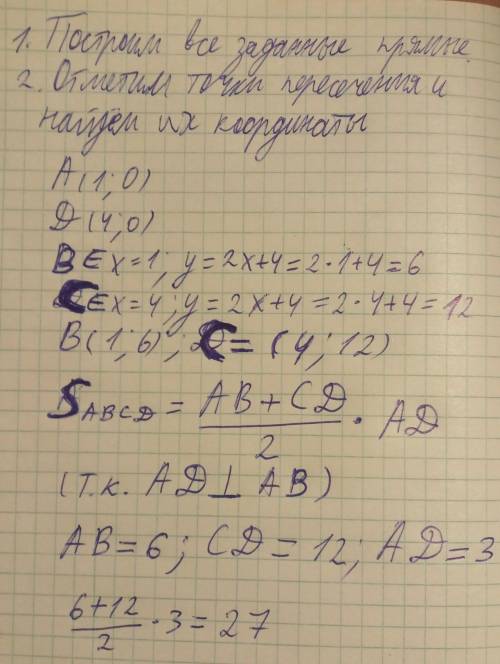 1. Построим все заданные прямые.
2. Отметим точки пересечения и
найдём их координаты
A(1;0)
D(4;0)
B∈x=1; y=2x+4=2·1+4=6
C∈x=4; y=2x+4=2·4+4=12
B(1;6); C=(4;12)
S ABCD = (AB+CD)/2 · AD
(т.к. AD⊥AB)
AB=6; CD=12; AD=3
(6+12)/2 · 3=27